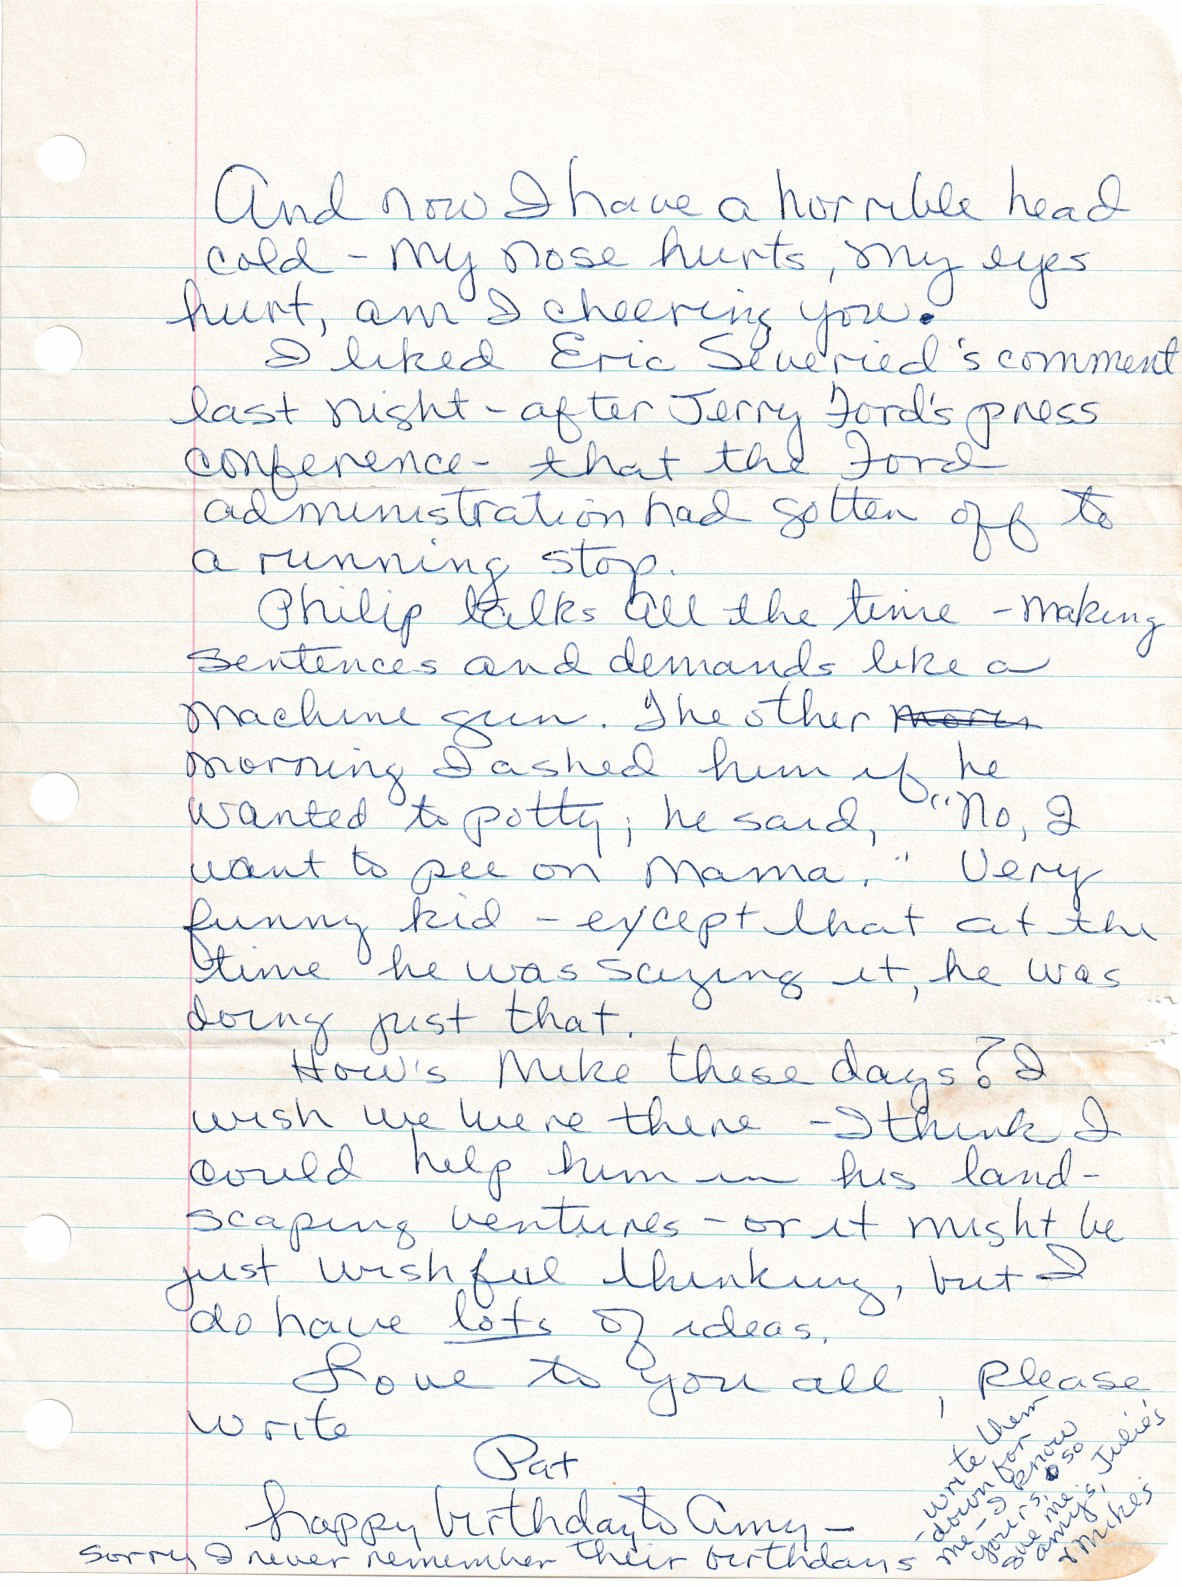 And now I have a horrible head
cold - my nose hurts, my eyes
hurt, am I cheering you.
I liked Eric Severied's comment
last night - after Jerry Ford's press
conference - that the Ford
administration had gotten off to
a running stop.
Philip talks all the time - making
sentences and demands like a
machine gun. The other morn
morning I asked him if he
wanted to potty; he said, "No, I
want to pee on Mama." Very
funny kid - except that at the
time he was saying it, he was
doing just that.
How's Mike these days? I
wish we were there - I think I
could help him in his land-
scaping ventures - or it might be
just wishful thinking, but I
do have lots of ideas.
Love to you all, please
write
Pat
happy birthday to Amy -
sorry I never remember their birthdays
- write them
down for
me - I know
yours, so
give me
amy's, Julie's
& Mike's